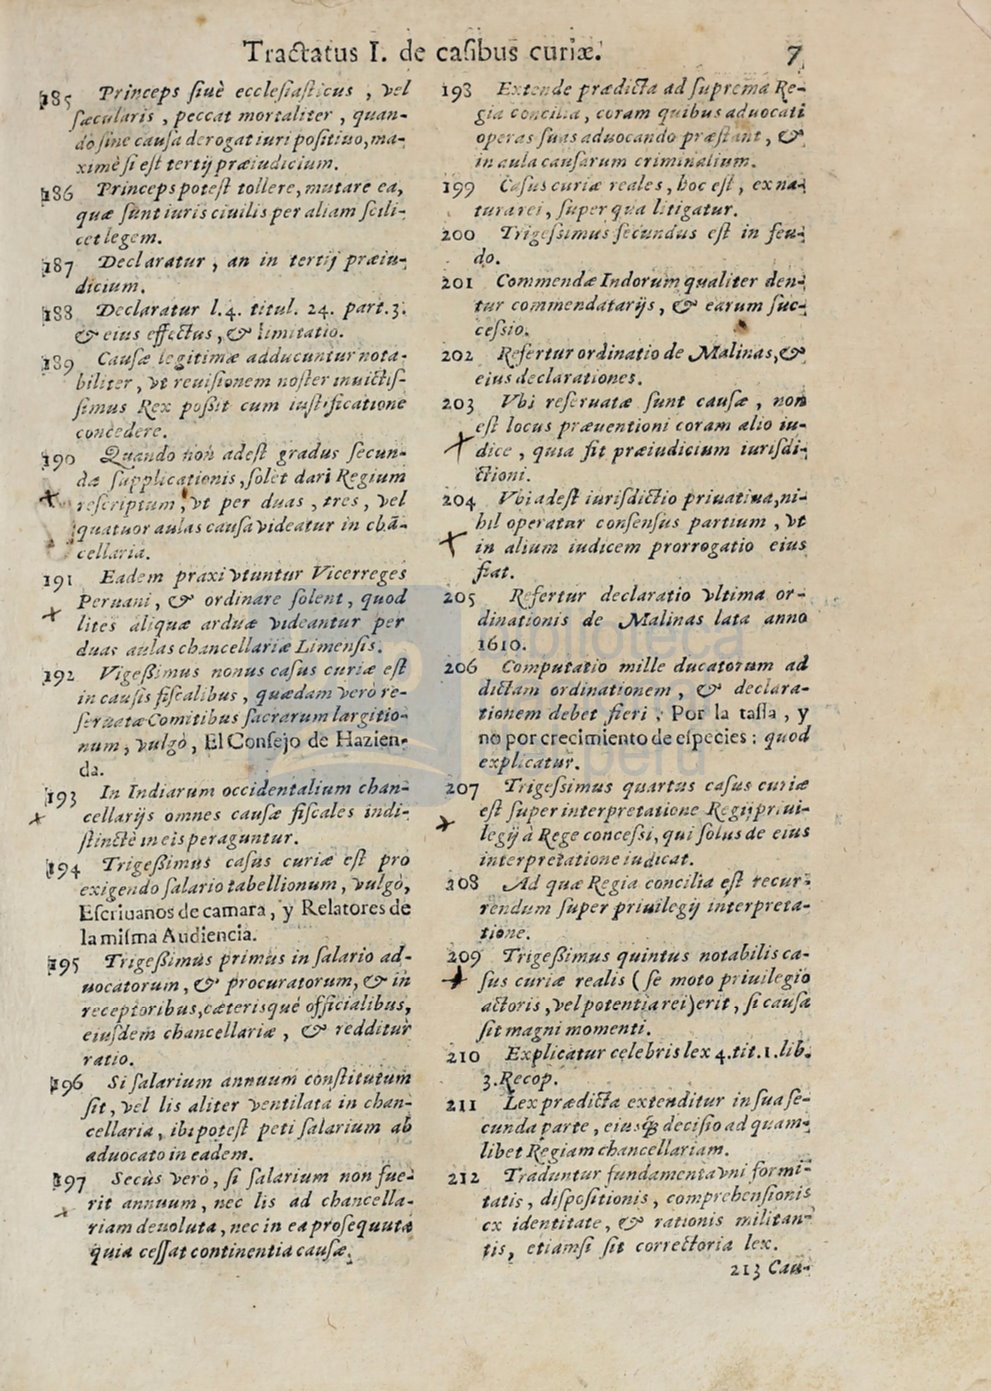 Tractatus I. de casibus curiæ. 7
185 Princeps siuè ecclesiasticus , vel
sæcularis , peccat mortaliter , quan-
do sine causa derogat iuri positiuo, ma-
ximè si est tertij præiudicium.
186 Princeps potest tollere, mutare ea,
quæ sunt iuris ciuilis per aliam scili-
cet legem.
187 Declaratur , an in tertij præiu-
dicium.
188 Declaratur l.4. titul. 24. part.3.
& eius effectus, & limitatio.
189 Causæ legitimæ adducuntur nota-
biliter, vt reuisionem noster inuictis-
simus Rex possit cum iustificatione
concedere.
190 Quando non adest gradus secun-
dæ supplicationis, solet dari Regium
rescriptum, vt per duas , tres , vel
quatuor aulas causa videatur in chã-
cellaria.
191 Eadem praxi vtuntur Vicerreges
Peruani, & ordinare solent, quod
lites aliquæ arduæ videantur per
duas aulas chancellariæ Limensis.
192 Vigessimus nonus casus curiæ est
in causis fiscalibus , quædam verò re-
seruatæ Comitibus sacrarum largitio-
num, vulgò, El Consejo de Hazien-
da.
193 In Indiarum occidentalium chan-
cellarijs omnes causæ fiscales indi-
stinctè in eis peraguntur.
194 Trigessimus casus curiæ est pro
exigendo salario tabellionum, vulgò,
Escriuanos de camara, y Relatores de
la misma Audiencia.
195 Trigessimus primus in salario ad-
uocatorum, & procuratorum, & in
receptoribus, cæterisquè officialibus,
eiusdem chancellariæ , & redditur
ratio.
196 Si salarium annuum constitutum
sit, vel lis aliter ventilata in chan-
cellaria, ibi potest peti salarium ab
aduocato in eadem.
197 Secùs verò, si salarium non fue-
rit annuum, nec lis ad chancella-
riam deuoluta, nec in ea prosequuta
quia cessat continentia causæ.
198 Extende prædicta ad suprema Re-
gia concilia, coram quibus aduocati
operas suas aduocando præstant, &
in aula causarum criminalium.
199 Casus curiæ reales, hoc est, ex na-
tura rei, super qua litigatur.
200 Trigessimus secundus est in feu-
do.
201 Commendæ Indorum qualiter den-
tur commendatarijs, & earum suc-
cessio.
202 Refertur ordinatio de Malinas, &
eius declarationes.
203 Vbi reseruatæ sunt causæ , non
est locus præuentioni coram alio iu-
dice , quia fit præiudicium iurisdi-
ctioni.
204 Vbi adest iurisdictio priuatiua, ni-
hil operatur consensus partium , vt
in alium iudicem prorrogatio eius
fiat.
205 Refertur declaratio vltima or-
dinationis de Malinas lata anno
1610.
206 Computatio mille ducatorum ad
dictam ordinationem , & declara-
tionem debet fieri , Por la tassa , y
no por crecimiento de especies : quod
explicatur.
207 Trigessimus quartus casus curiæ
est super interpretatione Regij priui-
legij à Rege concessi, qui solus de eius
interpretatione iudicat.
208 Ad quæ Regia concilia est recur-
rendum super priuilegij interpreta-
tione.
209 Trigessimus quintus notabilis ca-
sus curiæ realis (se moto priuilegio
actoris , vel potentia rei) erit, si causa
sit magni momenti.
210 Explicatur celebris lex 4.tit.1.lib.
3.Recop.
211 Lex prædicta extenditur in sua se-
cunda parte, eiusq; decisio ad quam-
libet Regiam chancellariam.
212 Traduntur fundamenta vni formi-
tatis, dispositionis , comprehensionis
ex identitate, & rationis militan-
tis, etiamsi sit correctoria lex.
213 Cau-